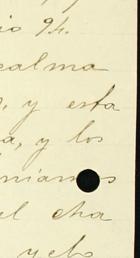 io 94.
calma
, y esta
a, y los
niamos
el cha
y els